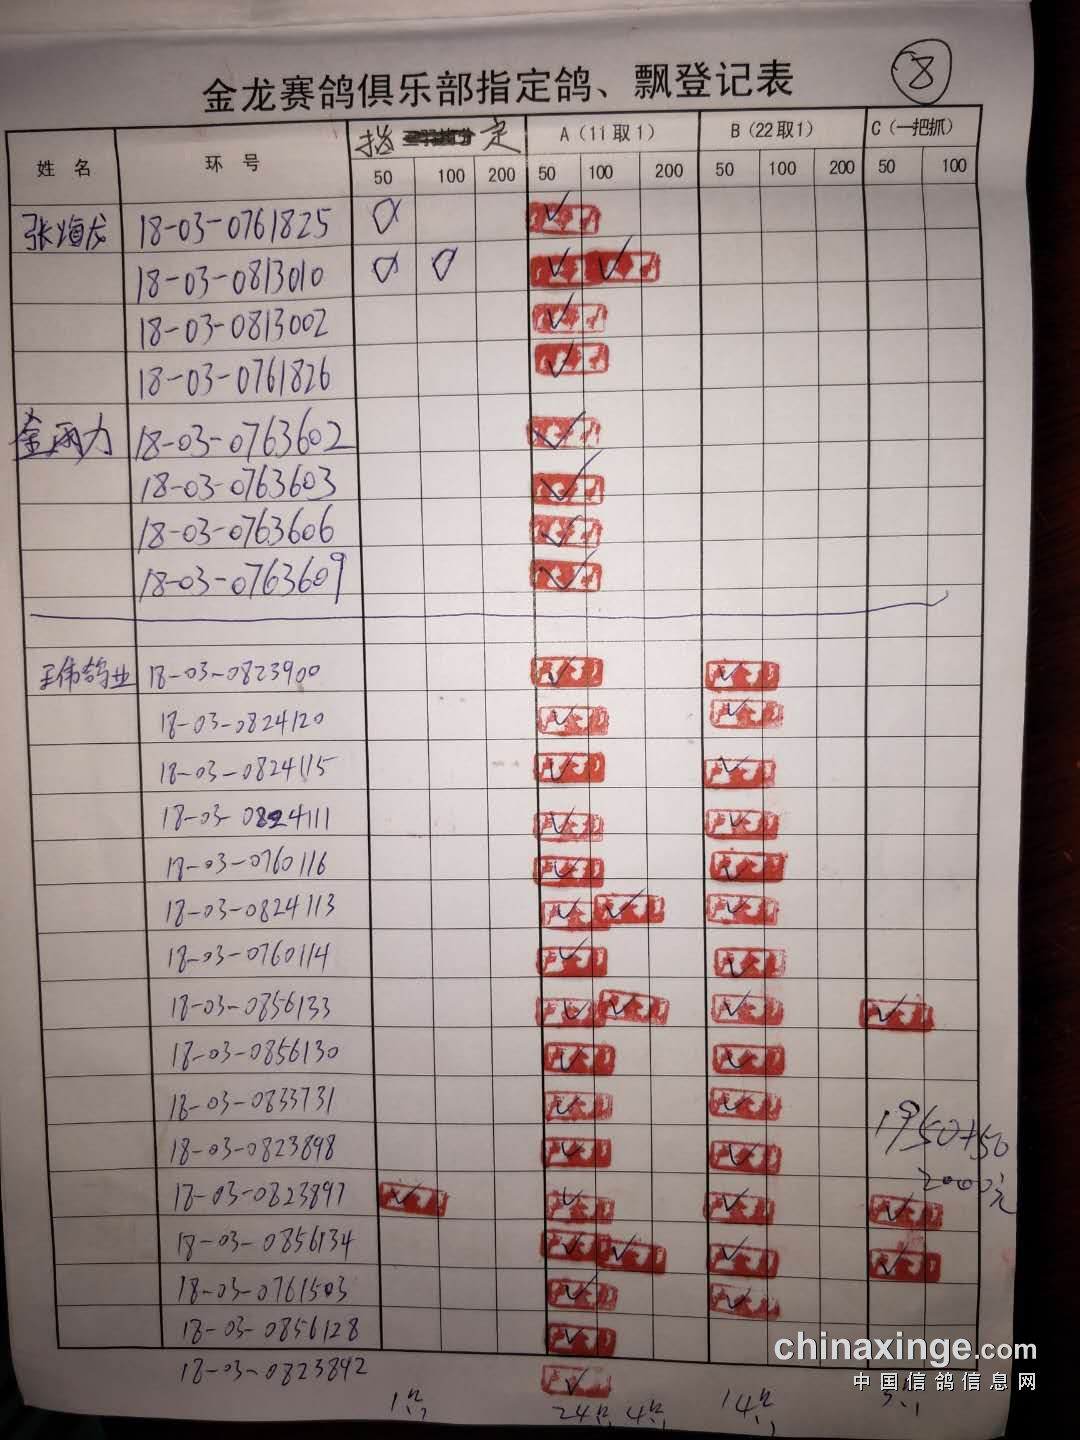 ⑧
金龙赛鸽俱乐部指定鸽、飘登记表
姓 名 环 号 指 定 A(11取1) B(22取1) C(一把抓)
50 100 200 50 100 200 50 100 200 50 100
18-03-0761825
18-03-0813010
18-03-0813002
18-03-0761826
18-03-0763602
18-03-0763603
18-03-0763606
18-03-0763609
王伟鸽业 18-03-0823900
18-03-0824120
18-03-0824115
18-03-0824111
18-03-0760116
18-03-0824113
18-03-0760114
18-03-0856133
18-03-0856130
18-03-0833731
1950+50
18-03-0823898
2000元
18-03-0823897
18-03-0856134
18-03-0761503
18-03-0856128
18-03-0823842
chinaxinge.com
中国信鸽信息网